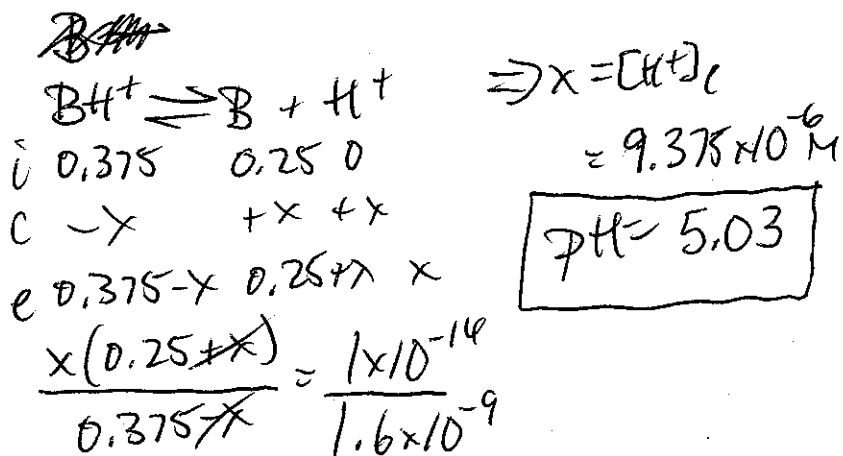 BH⁺ ⇌ B + H⁺
i 0.375 0.25 0
c -x +x +x
e 0.375-x 0.25+x x
x(0.25+x) / 0.375-x = 1x10⁻¹⁴ / 1.6x10⁻⁹
⇒ x = [H⁺]e
= 9.375x10⁻⁶ M
pH = 5.03